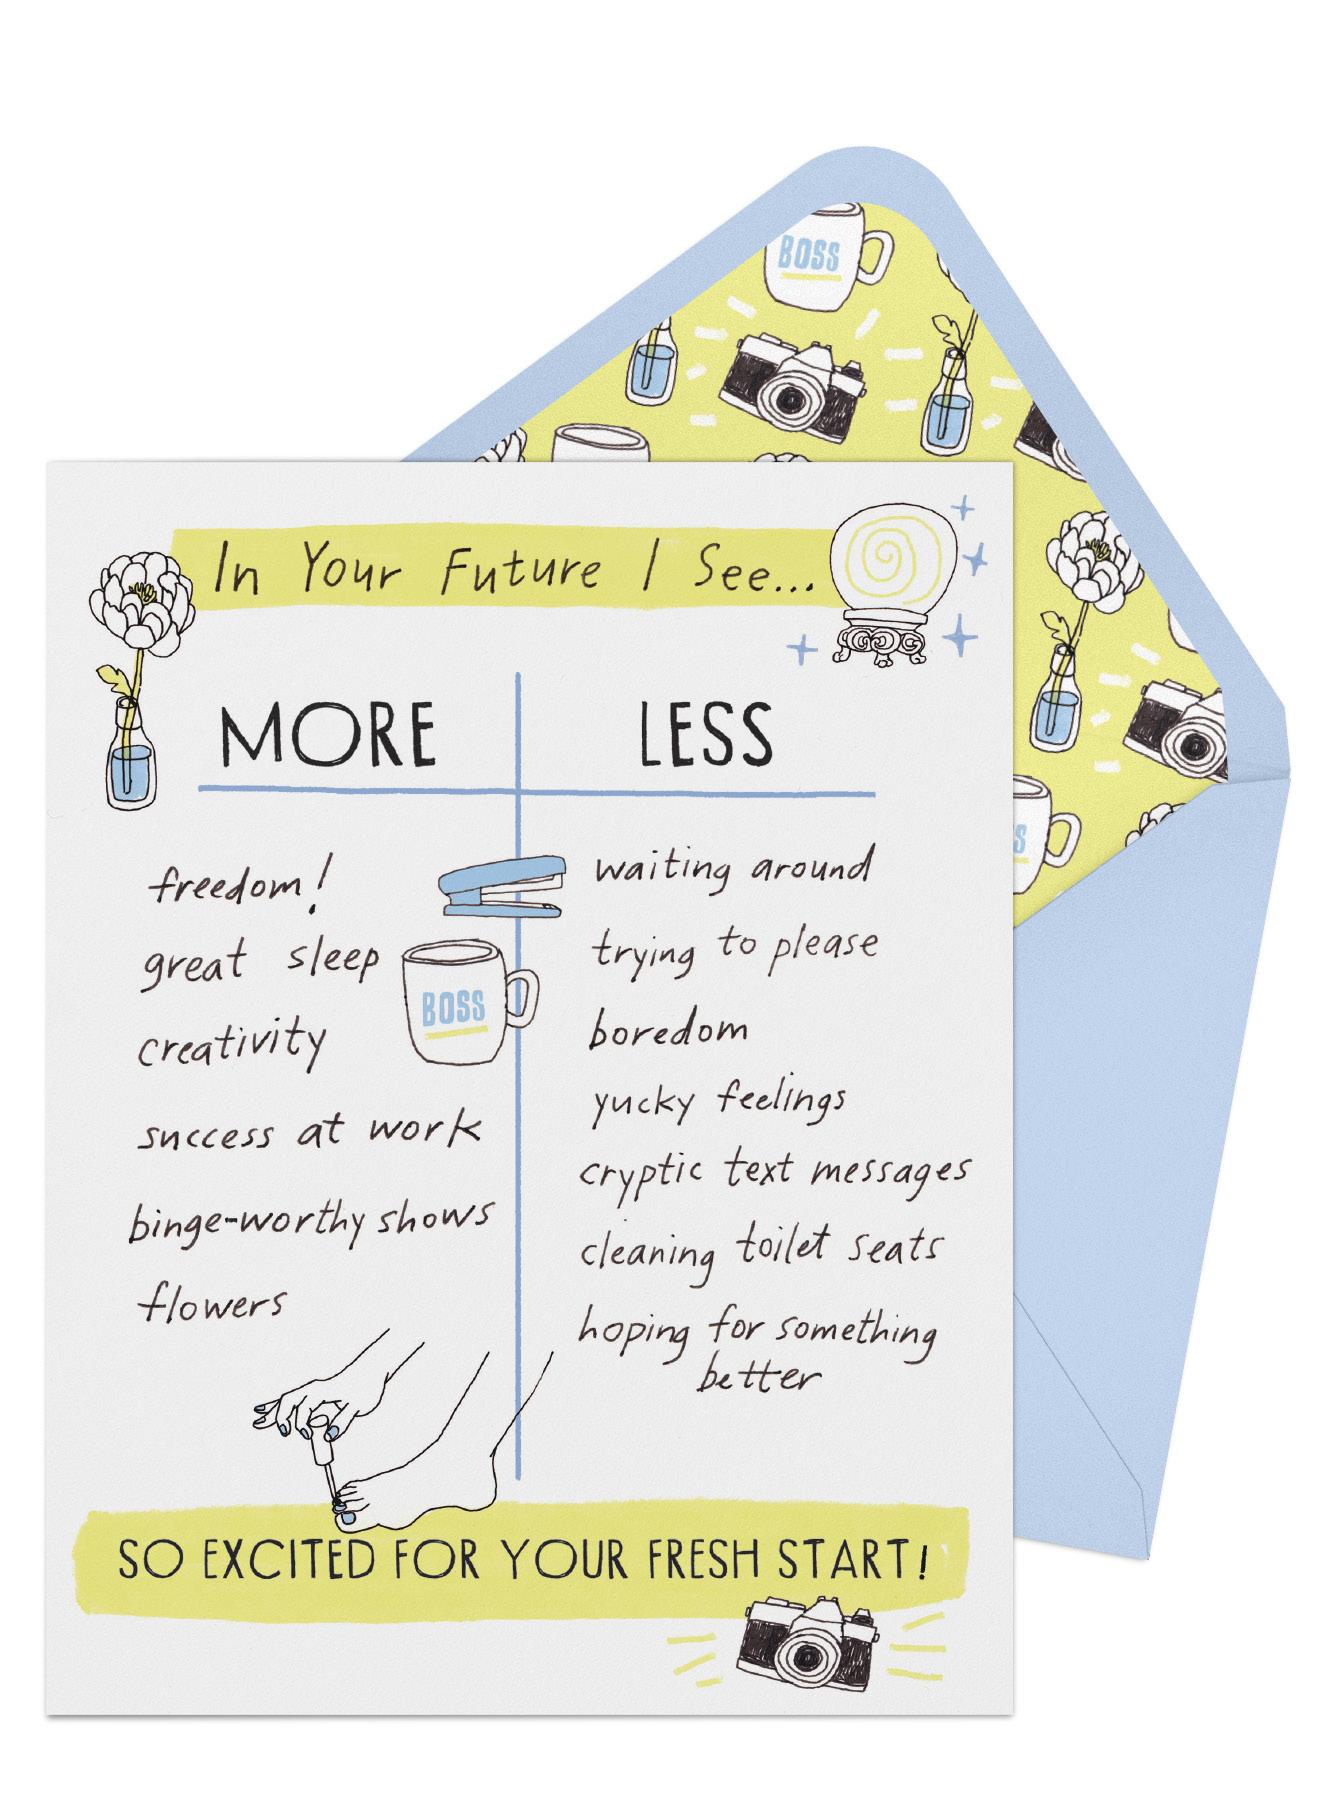 BOSS
In Your Future I See...
MORE
LESS
freedom!
great sleep
creativity
success at work
binge-worthy shows
flowers
BOSS
waiting around
trying to please
boredom
yucky feelings
cryptic text messages
cleaning toilet seats
hoping for something
better
SO EXCITED FOR YOUR FRESH START!